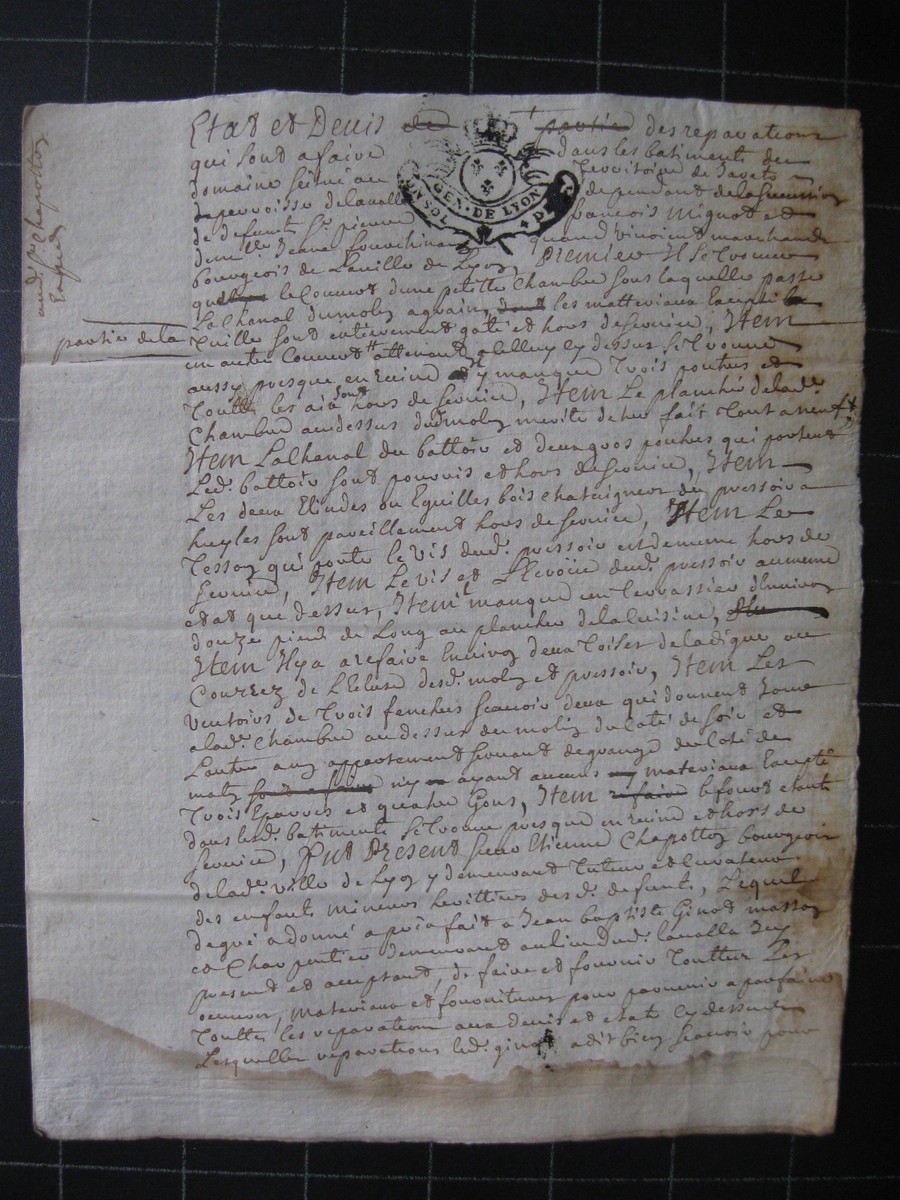 Etat et Devis de partie des reparations
qui sont a faire dans les batiments du
domaine scitué au Territoire de
perroisse delavalla dependant dela
de defunts Sr. pierre francois mignot et
demlle. Jeanne quand vivoint marchands
bourgeois de Laville de Lyon, Premier Il se trouve
que le Couvert dune petitte Chambre sous laquelle passe
LaChanal dumolin agrain, dont les matteriaux Excepté la
partie de la
Tuille sont entierement gaté et hors deservice, Item
un autre Couvert attenant aCelluy cy dessus se trouve
aussy presque en ruine et y manque Trois poutres et
Toutte les aix sont hors de service, Item Le planché delade.
Chambre audessus dumolin merite detre fait Tout aneuf
Item LaChanal du battoir et deux gros pouhes qui portent
Led. battoir sont pourris et hors deservice, Item
Les deux Elindes ou Eguilles bois chataignier du pressoir a
huyles sont pareillement hors de service, Item Le
Tesson qui porte le vis dud. pressoir est de meme hors de
service, Item Le vis et L'Ecroüe dud. pressoir aumeme
etat que dessus, Item manque un Terrassier d'Environ
douze pied de Long au plancher delaCuisine,
Item Ilya arefaire Environ deux Toises deladigue au
de L'Ecluse desd. molin et pressoir, Item Les
ventoirs de Trois fenetres scavoir deux qui donnent Jour
alade. Chambre au dessus du molin du Coté de soir et
Lautre aux appartement servant degrange du Coté de
matin sont a faire n'y ayant aucuns materiaux Excepté
Trois Eparres et quatre Gons, Item le four etant
dans lesd. batiments se trouve presque en ruine et hors de
service, Fut Present sieur Etienne Chapotton bourgeois
delade. ville de Lyon y demeurant Tuteur et Curateur
des enfants mineurs heritiers desd. defunts, Lequel
degré adonné a prix fait a Jean baptiste Ginot masson
et Charpentier demeurant aulieu dud. lavalla Icy
present et acceptant, de faire et fournir Touttes Les
œuvres, materiaux et fournitures pour parvenir a parfaire
Toutte les reparations aux devis et etat cy dessus
Lesquelles reparations led. ginot a dit bien scavoir pour
GEN. DE LYON